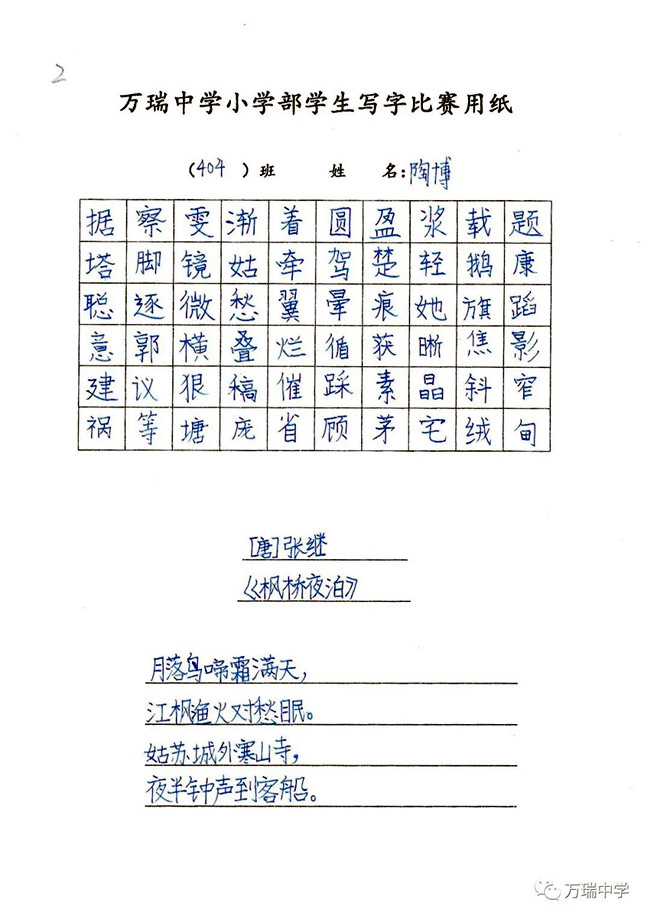 2
万瑞中学小学部学生写字比赛用纸
（404）班 姓 名：陶博
据察雯渐着圆盈浆载题
塔脚镜姑牵驾楚轻鹅康
聪逐微愁翼晕痕她旗蹈
意郭横叠烂循获晰焦影
建议狠稿催踩素晶斜窄
祸等塘庞省顾茅宅绒甸
[唐]张继
《枫桥夜泊》
月落鸟啼霜满天，
江枫渔火对愁眠。
姑苏城外寒山寺，
夜半钟声到客船。
万瑞中学